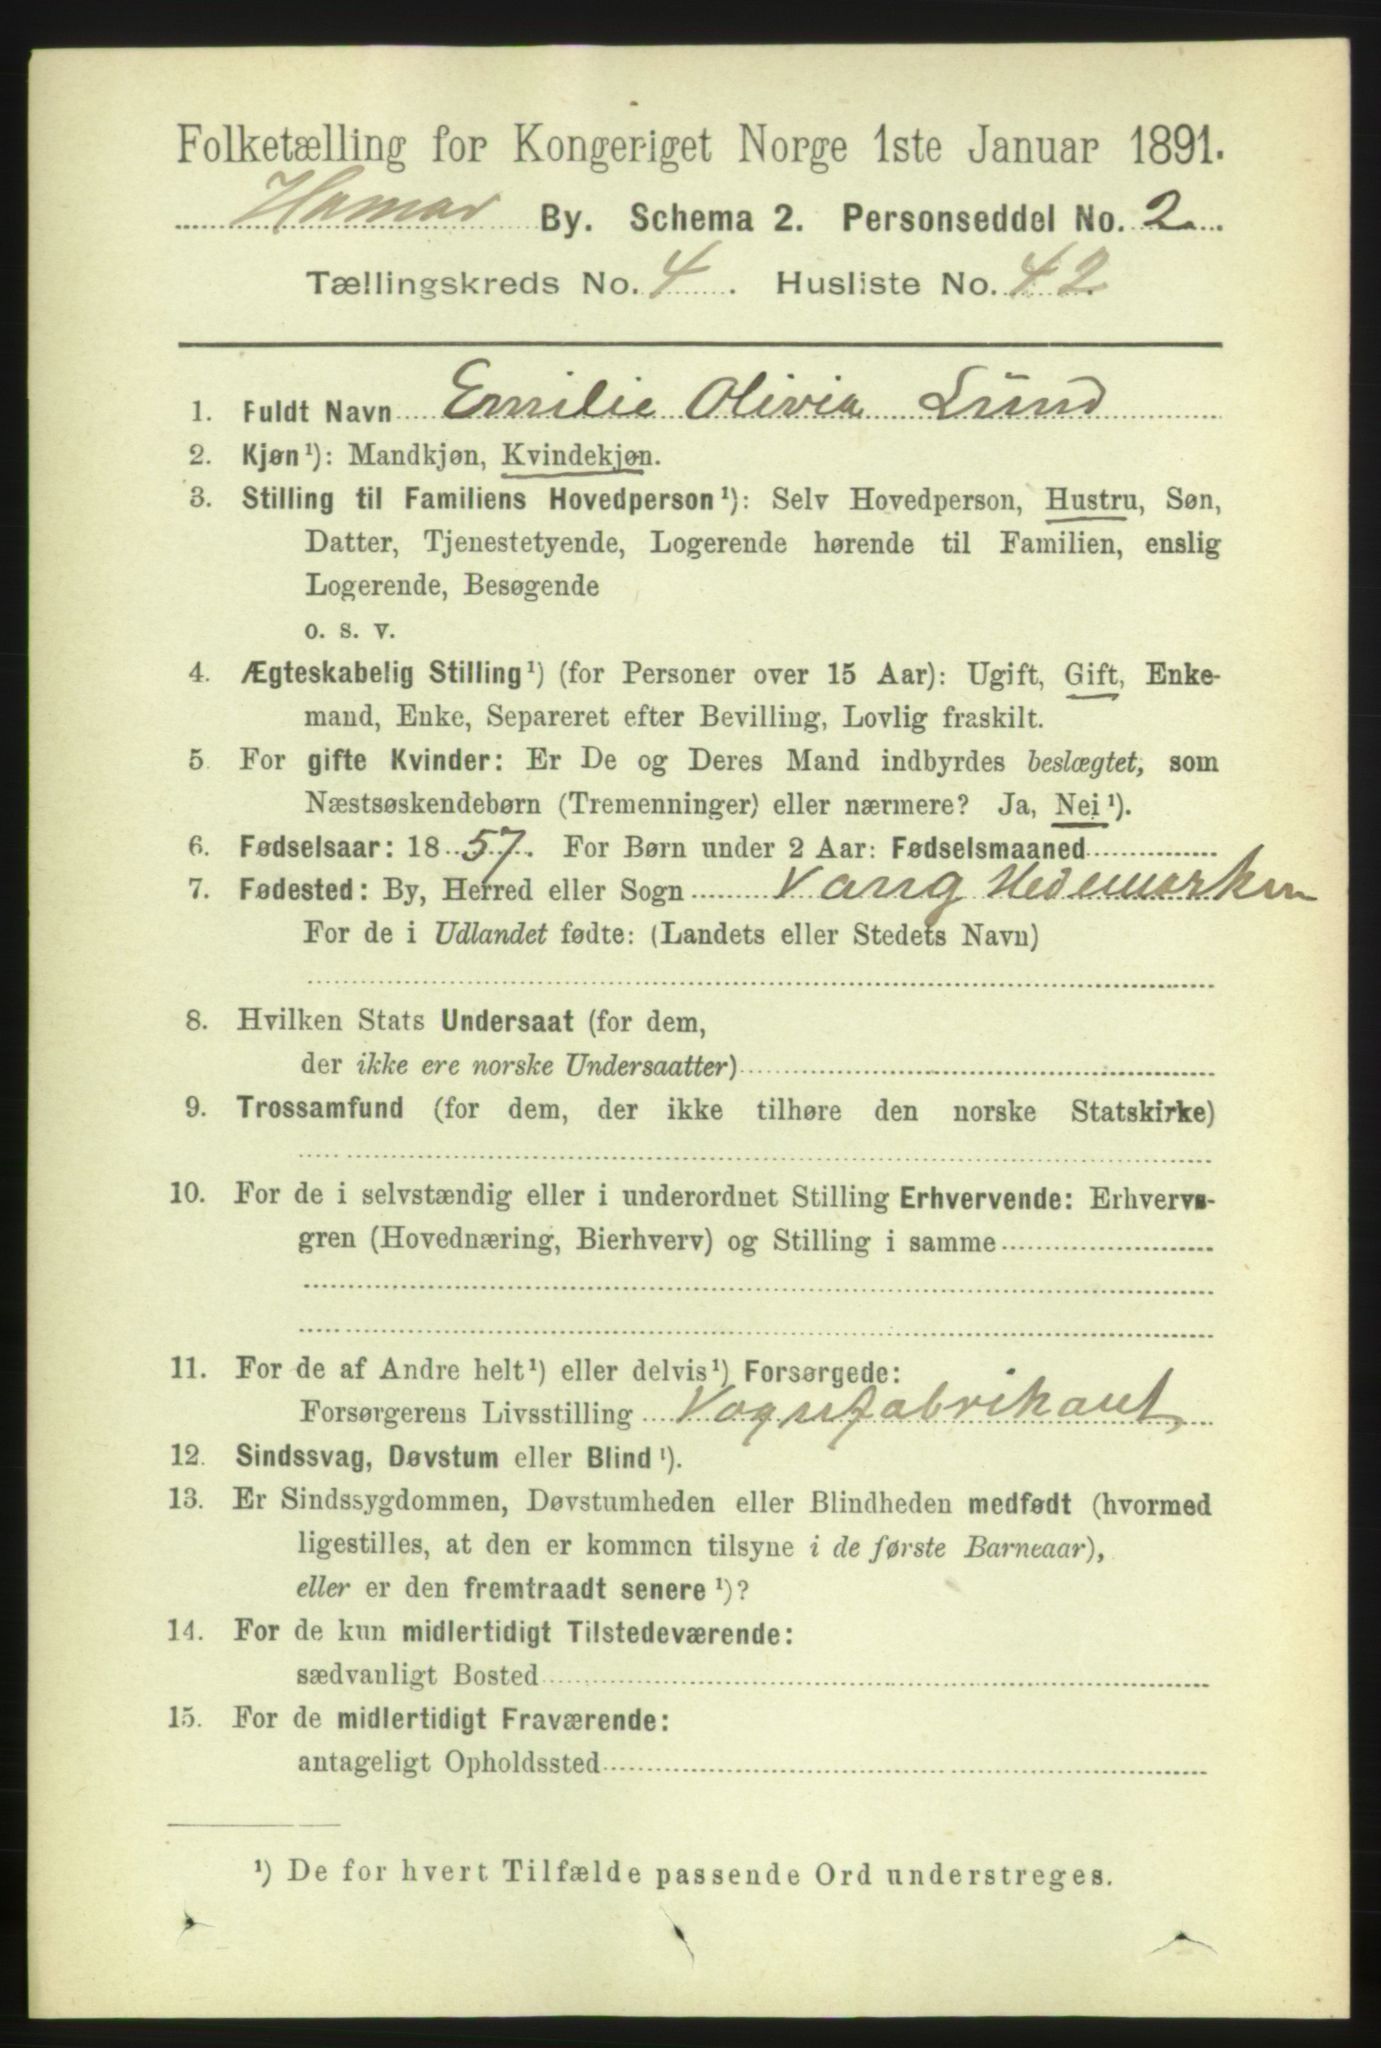 Folketælling for Kongeriget Norge 1ste Januar 1891.
Hamar By. Schema 2. Personseddel No. 2
Tællingskreds No. 4. Husliste No. 42
1. Fuldt Navn Emilie Olivia Lund
2. Kjøn¹): Mandkjøn, Kvindekjøn.
3. Stilling til Familiens Hovedperson¹): Selv Hovedperson, Hustru, Søn,
Datter, Tjenestetyende, Logerende hørende til Familien, enslig
Logerende, Besøgende
o. s. v.
4. Ægteskabelig Stilling¹) (for Personer over 15 Aar): Ugift, Gift, Enke-
mand, Enke, Separeret efter Bevilling, Lovlig fraskilt.
5. For gifte Kvinder: Er De og Deres Mand indbyrdes beslægtet, som
Næstsøskendebørn (Tremenninger) eller nærmere? Ja, Nei¹).
6. Fødselsaar: 1857. For Børn under 2 Aar: Fødselsmaaned
7. Fødested: By, Herred eller Sogn Vang Hedemarken
For de i Udlandet fødte: (Landets eller Stedets Navn)
8. Hvilken Stats Undersaat (for dem,
der ikke ere norske Undersaatter)
9. Trossamfund (for dem, der ikke tilhøre den norske Statskirke)
10. For de i selvstændig eller i underordnet Stilling Erhvervende: Erhvervs-
gren (Hovednæring, Bierhverv) og Stilling i samme
11. For de af Andre helt¹) eller delvis¹) Forsørgede:
Forsørgerens Livsstilling Vognfabrikant,
12. Sindssvag, Døvstum eller Blind¹).
13. Er Sindssygdommen, Døvstumheden eller Blindheden medfødt (hvormed
ligestilles, at den er kommen tilsyne i de første Barneaar),
eller er den fremtraadt senere¹)?
14. For de kun midlertidigt Tilstedeværende:
sædvanligt Bosted
15. For de midlertidigt Fraværende:
antageligt Opholdssted
¹) De for hvert Tilfælde passende Ord understreges.